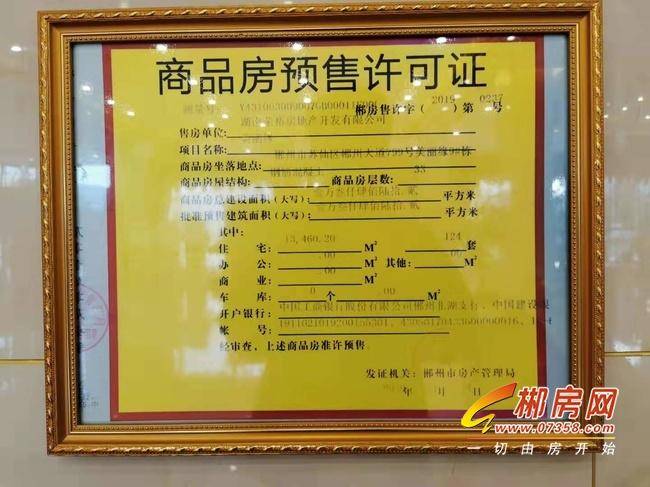 商品房预售许可证
测量号：
郴房售许字（2019）第0237号
售房单位：湖南 房地产开发有限公司
项目名称：
商品房坐落地点：郴州市苏仙区郴州大道799号美丽缘9#栋
商品房屋结构：钢筋混凝土 商品房层数：33
商品房总建设面积（大写）：万叁仟肆佰陆拾 贰 平方米
批准预售建筑面积（大写）：万叁仟肆佰陆拾 贰 平方米
其中：
住宅：13,460.20 M² 124 套
办公：.00 M² 其他：.00 M²
商业：.00 M²
车库：0 个 .00 M²
开户银行：中国工商银行股份有限公司郴州北湖支行、中国建设银
帐号：
经审查、上述商品房准许预售。
发证机关：郴州市房产管理局
年 月 日
郴房网
www.07358.com
一切由房开始